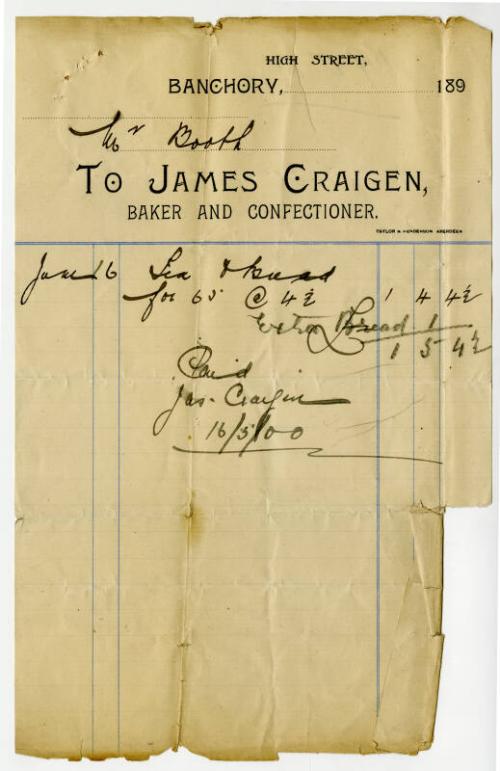 HIGH STREET,
BANCHORY, 189
Mr Booth
TO JAMES CRAIGEN,
BAKER AND CONFECTIONER.
TAYLOR & HENDERSON ABERDEEN
June 16 Tea & bread
for 65 @ 4½ 1 4 4½
Extra Bread 1
£ 1 5 4½
Paid
Jas. Craigen
16/5/00